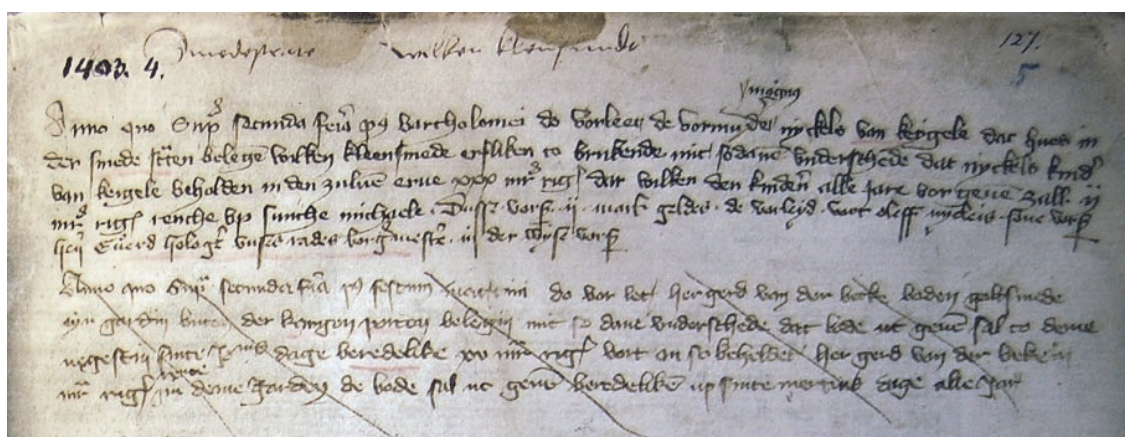 Smedestrate wilken klensmid
127.
1403. 4.
5
Anno quo Sup secunda feria p9 Bartholomei do vorleet de vormunder nyckels van keigele dat hues in
der smede straten belegen wilken kleensmede erfliken to brukende mit sodanen underscheide dat nyckels kind
van keigele beholden in den zuluen erue xxx mr rig dar wilken den kinderen alle jare vor geuen zall ij
mr rig renthe up sunthe michaele Desse vors ij mark geldes de vorleyd vort oleff nyckels sone vors
her Euerd unses rades borgmester in der wyse vors
Anno quo Sup secunda feria p9 festum martini do vor let her gerd van der beke boden goltsmede
eyn garden buten der porten belegen mit so dane underschede dat bode ut geuen sal to deme
negesten sinte dage beredelike xv mr rig vort an so beholdet her gerd van der beke
mr rig in deme garden de bode sal ut geuen beredeliken up sinte mertins dage alle jar